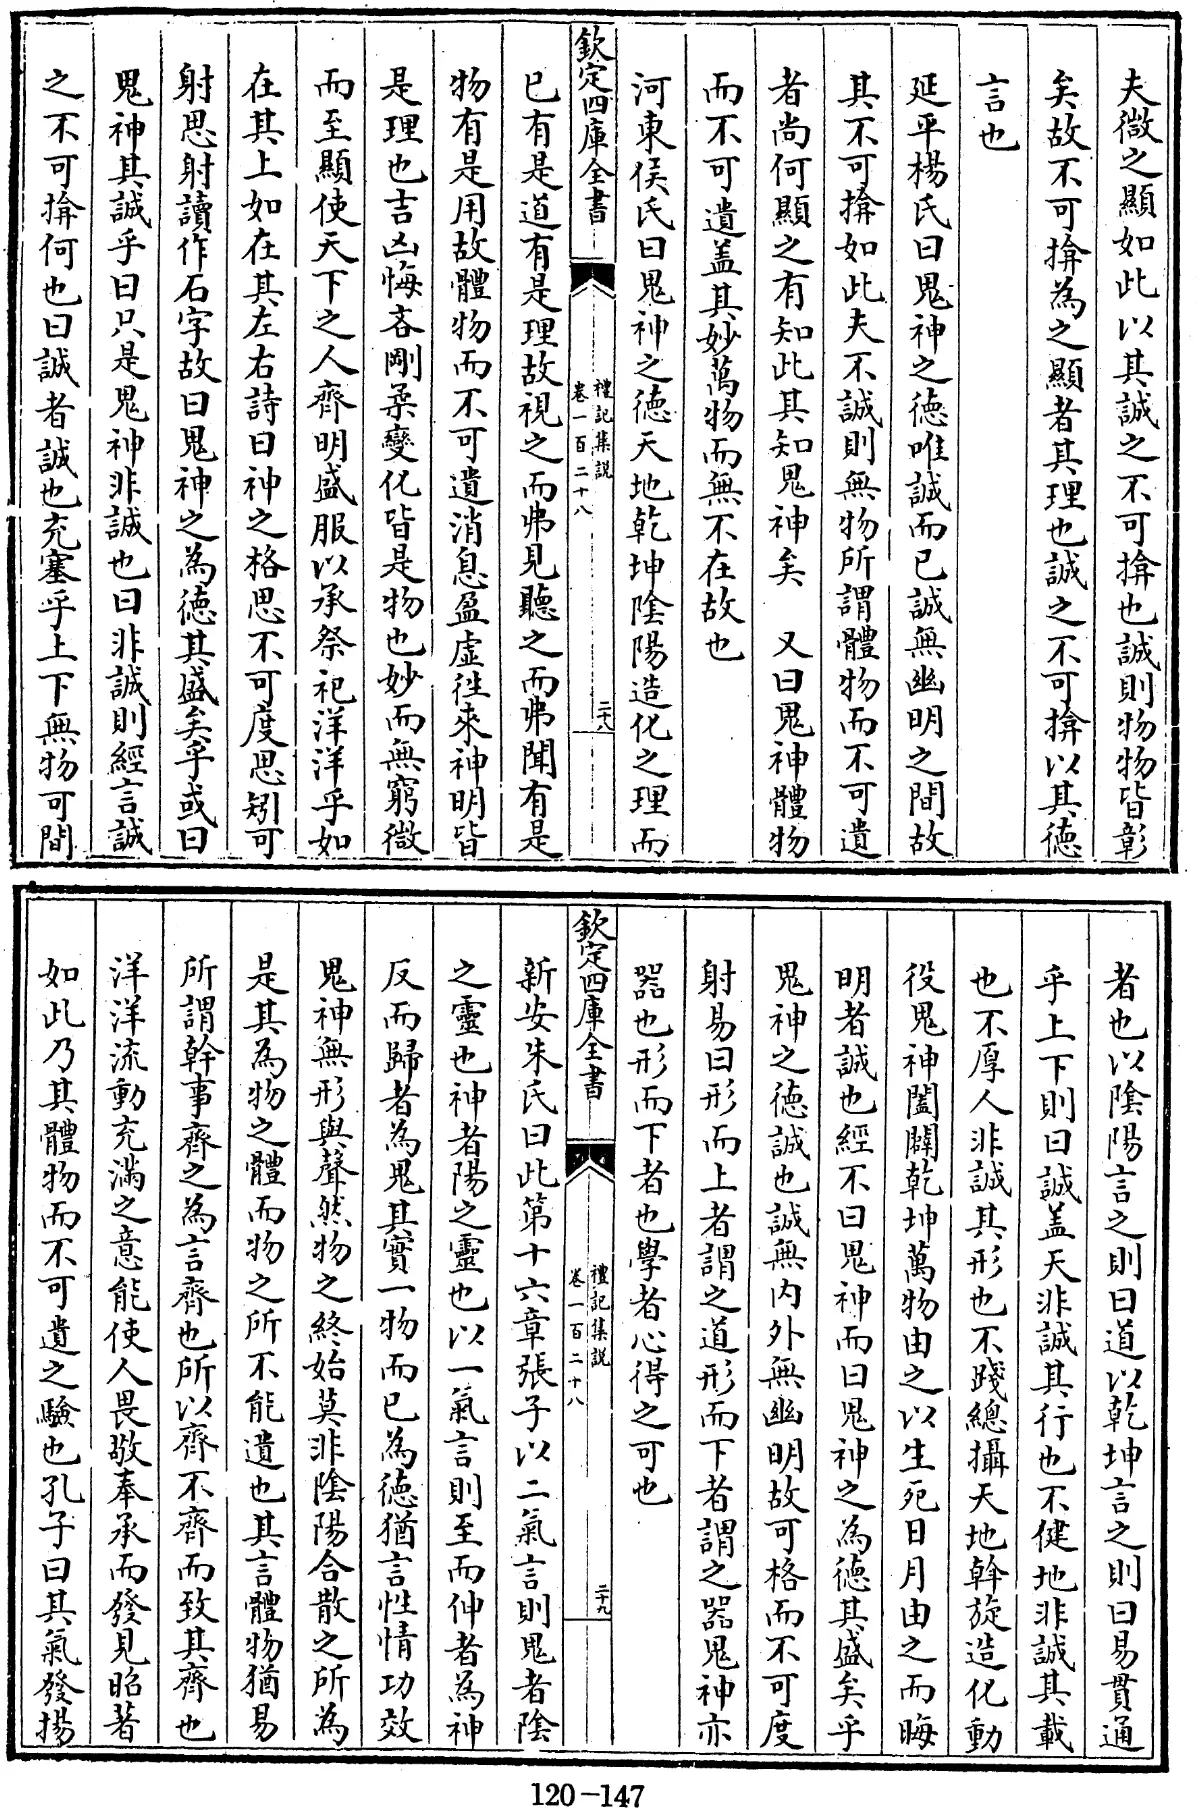 夫微之顯如此以其誠之不可揜也誠則物物皆彰
矣故不可揜為之顯者其理也誠之不可揜以其徳
言也
延平楊氏曰鬼神之徳唯誠而已誠無幽明之間故
其不可揜如此夫不誠則無物所謂體物而不可遺
者尚何顯之有知此其知鬼神矣　又曰鬼神體物
而不可遺盖其妙萬物而無不在故也
河東侯氏曰鬼神之徳天地乾坤陰陽造化之理而
欽定四庫全書
禮記集説
卷一百二十八
二十八
已有是道有是理故視之而弗見聽之而弗聞有是
物有是用故體物而不可遺消息盈虛往來神明皆
是理也吉凶悔吝剛柔變化皆是物也妙而無窮微
而至顯使天下之人齊明盛服以承祭祀洋洋乎如
在其上如在其左右詩曰神之格思不可度思矧可
射思射讀作石字故曰鬼神之為徳其盛矣乎或曰
鬼神其誠乎曰只是鬼神非誠也曰非誠則經言誠
之不可揜何也曰誠者誠也充塞乎上下無物可間
者也以陰陽言之則曰道以乾坤言之則曰易貫通
乎上下則曰誠盖天非誠其行也不健地非誠其載
也不厚人非誠其形也不踐總攝天地斡旋造化動
役鬼神闔闢乾坤萬物由之以生死日月由之而晦
明者誠也經不曰鬼神而曰鬼神之為徳其盛矣乎
鬼神之徳誠也誠無内外無幽明故可格而不可度
射易曰形而上者謂之道形而下者謂之器鬼神亦
器也形而下者也學者心得之可也
欽定四庫全書
禮記集説
卷一百二十八
二十九
新安朱氏曰此第十六章張子以二氣言則鬼者陰
之靈也神者陽之靈也以一氣言則至而伸者為神
反而歸者為鬼其實一物而已為徳猶言性情功效
鬼神無形與聲然物之終始莫非陰陽合散之所為
是其為物之體而物之所不能遺也其言體物猶易
所謂幹事齊之為言齊也所以齊不齊而致其齊也
洋洋流動充滿之意能使人畏敬奉承而發見昭著
如此乃其體物而不可遺之驗也孔子曰其氣發揚
120-147